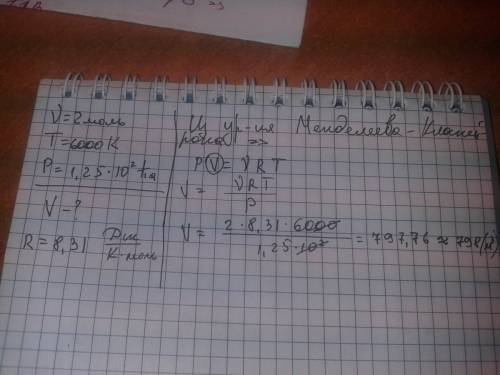 ν = 2 моль
T = 6000 K
P = 1,25 · 10² Па
V - ?
R = 8,31 Дж / К·моль
Из ур-ия Менделеева - Клапей
рона =>
P V = ν R T
V = ν R T / P
V = 2 · 8,31 · 6000 / 1,25 · 10² = 797,76 ≈ 798 (м³)